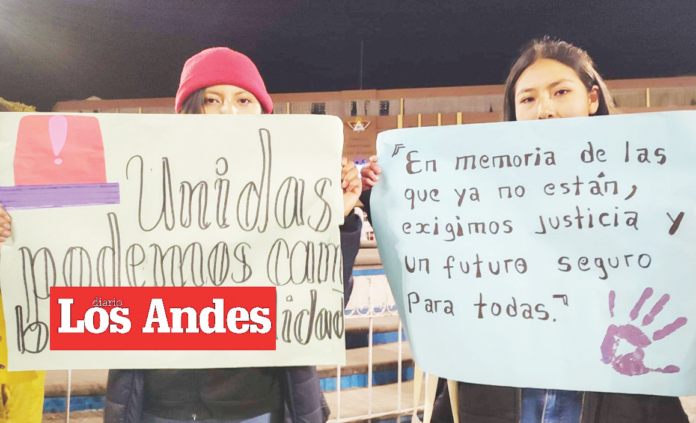 Unidas
podemos cam
idad
diario
Los Andes
"En memoria de las
que ya no están,
exigimos justicia y
un futuro seguro
Para todas."